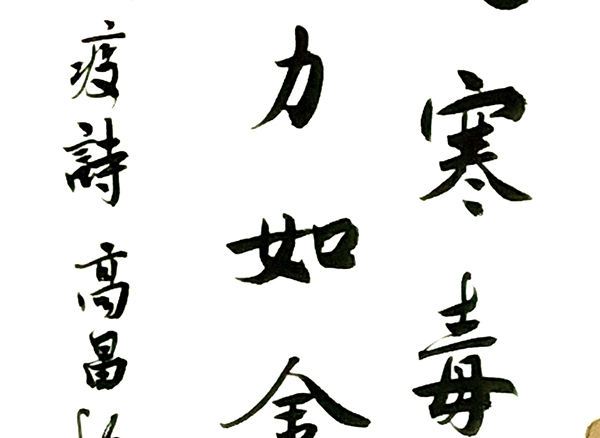 寒毒
力如
疫詩 高昌